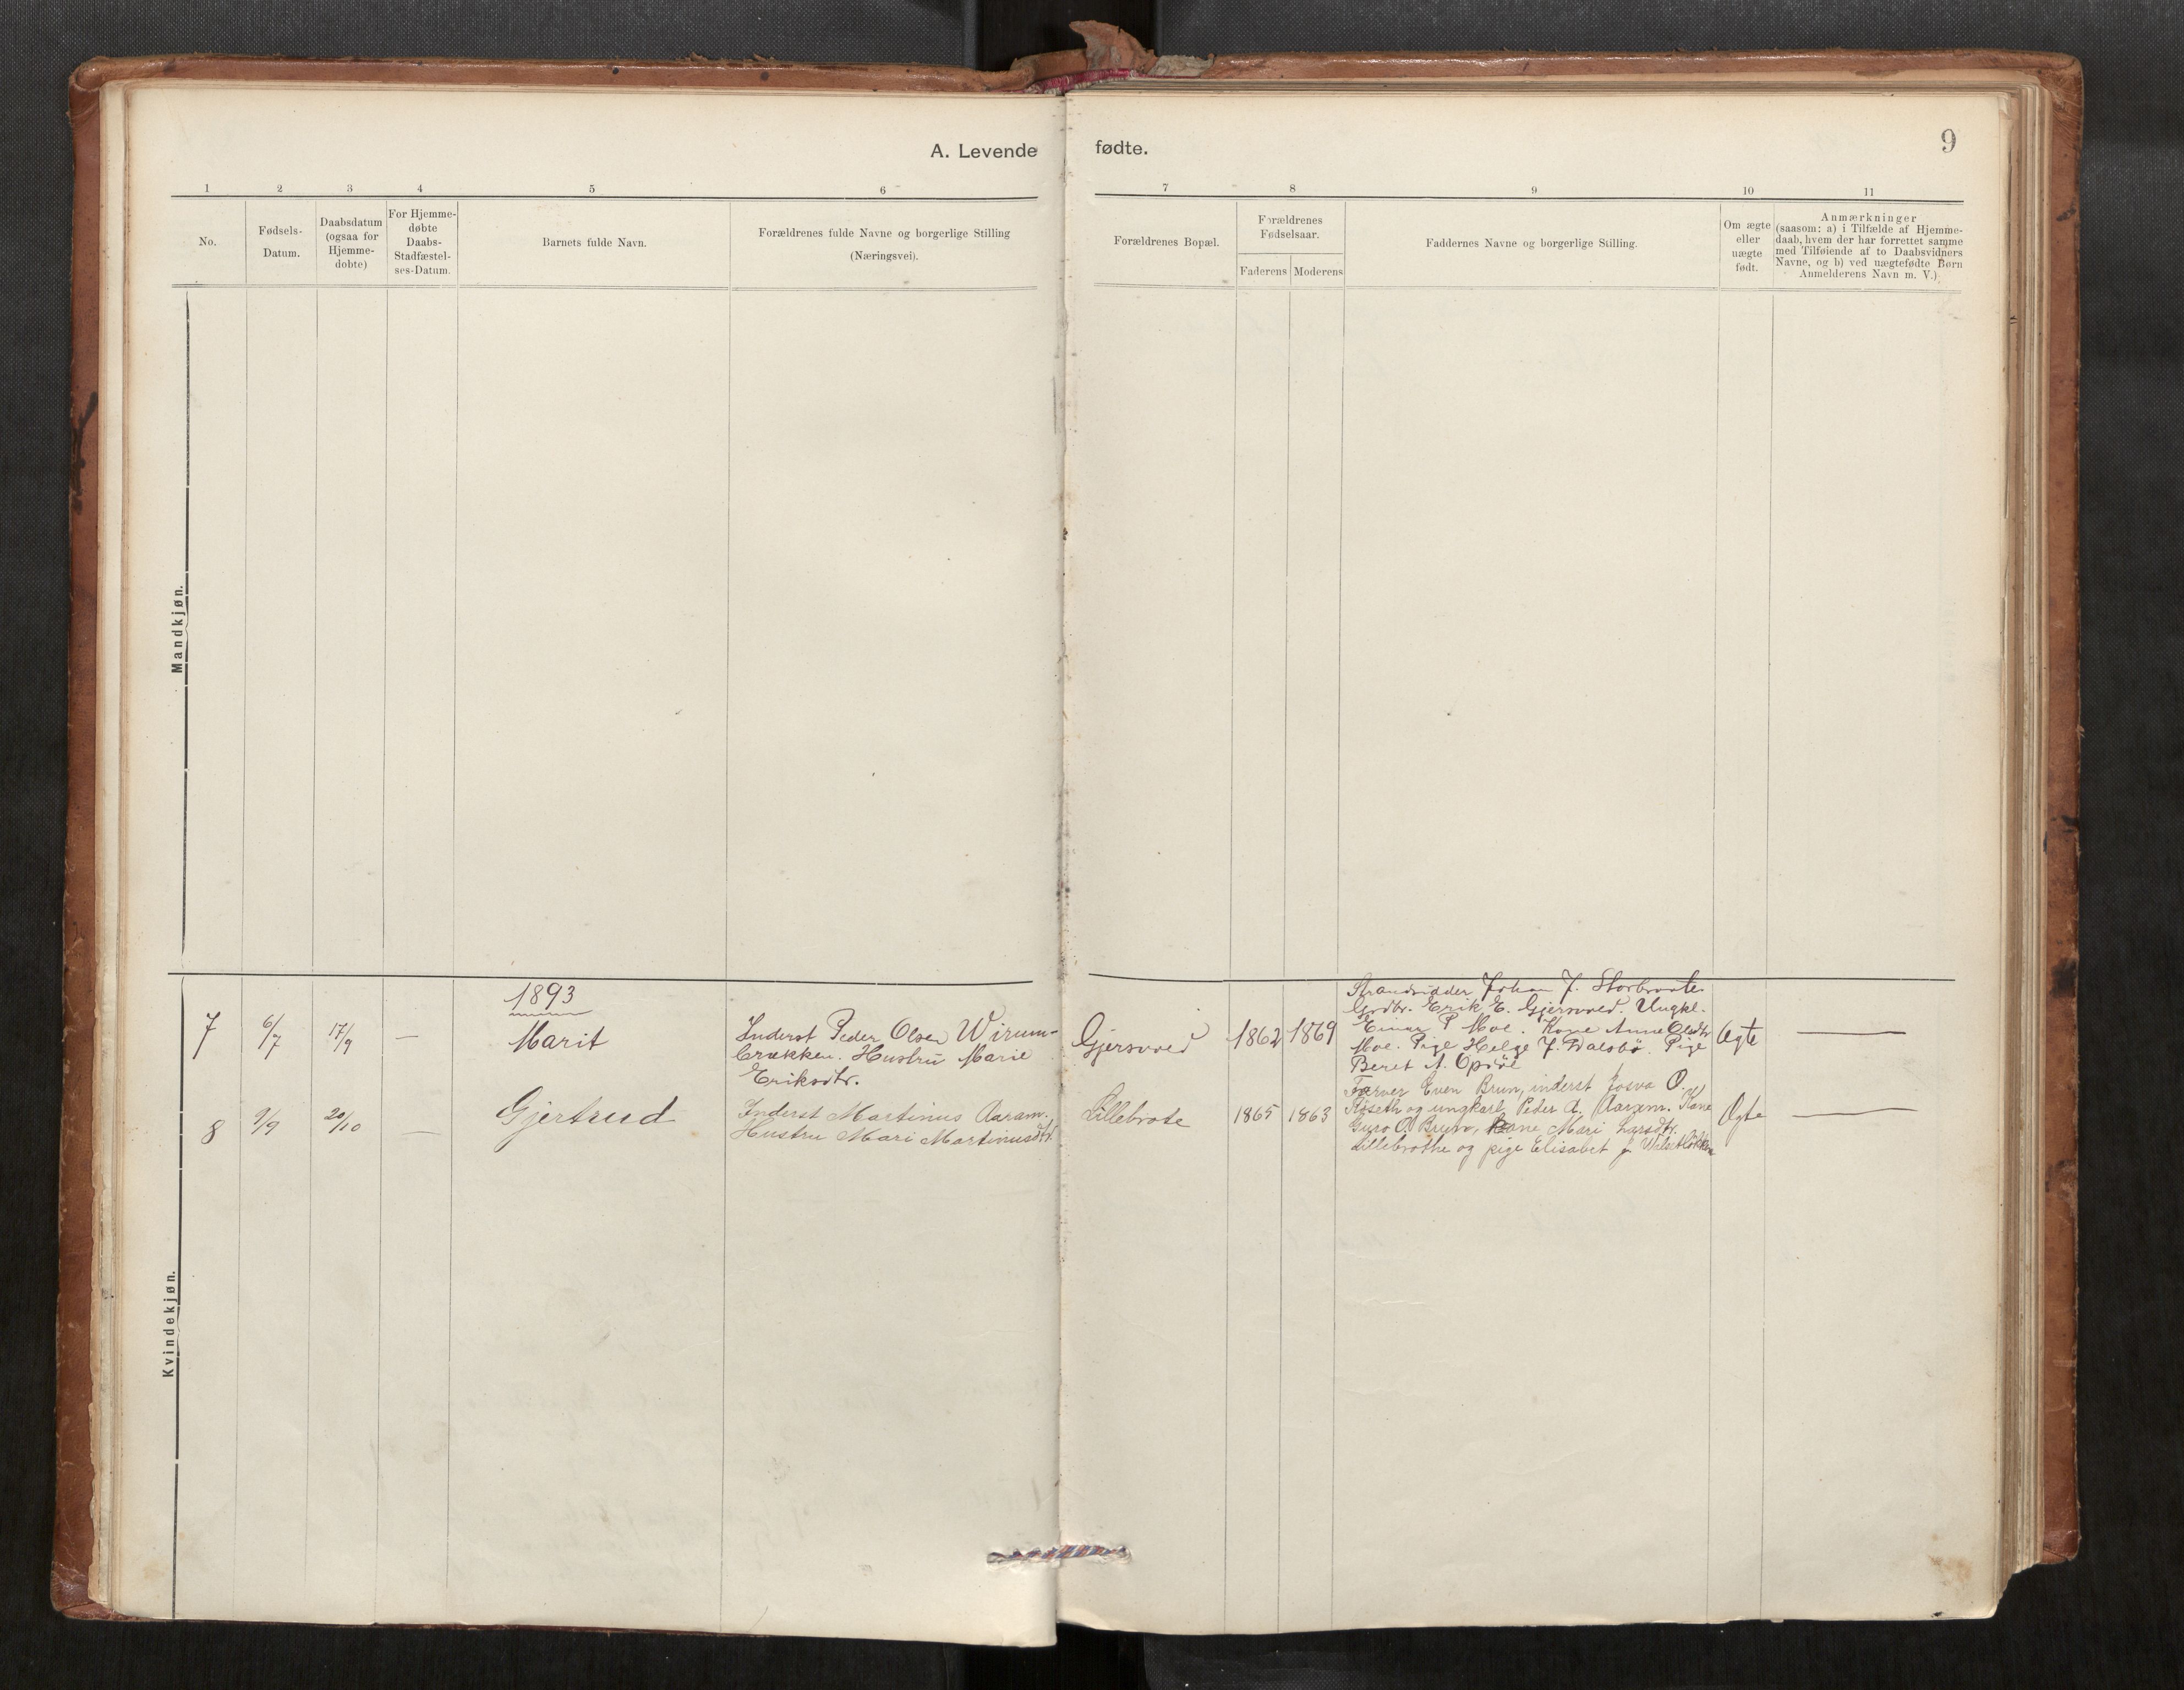 A. Levende fødte.
9
1 2 3 4 5 6 7 8 9 10 11
No.
Fødsels-
Datum.
Daabsdatum
(ogsaa for
Hjemme-
døbte)
For Hjemme-
døbte
Daabs-
Stadfæstel-
ses-Datum.
Barnets fulde Navn.
Forældrenes fulde Navne og borgerlige Stilling
(Næringsvei).
Forældrenes Bopæl.
Forældrenes
Fødselsaar.
Faderens Moderens
Faddernes Navne og borgerlige Stilling.
Om ægte
eller
uægte
født.
Anmærkninger
(saasom: a) i Tilfælde af Hjemme-
daab, hvem der har forrettet samme
med Tilføiende af to Daabsvidners
Navne, og b) ved uægtefødte Børn
Anmelderens Navn m. V.)
Mandkjøn.
Kvindekjøn.
1893
7 6/7 17/9 — Marit
Inderst Peder Olsen Wirum-
brækken. Hustru Marie
Eriksdtr.
Gjersvoed 1862 1869
Strandsidder Johan J. Storbroote
Grdbr. Erik E. Gjersvoed. Ungkl.
Einar P Moe. Kone Anne Olsdtr
Moe. Pige Helge J. Dalsbø. Pige
Beret A. Opdöl
Ægte —
8 9/9 20/10 — Gjertrud
Inderst Martinus Aaram.
Hustru Mari Martinusdtr.
Lillebrote 1865 1863
Farver Even Brun, inderst Josva O.
Röseth og ungkarl Peder A. Aarem. Kone
Guro O. Bruvo, Kone Mari Larsdtr.
Lillebrothe og pige Elisabet J.
Ægte —